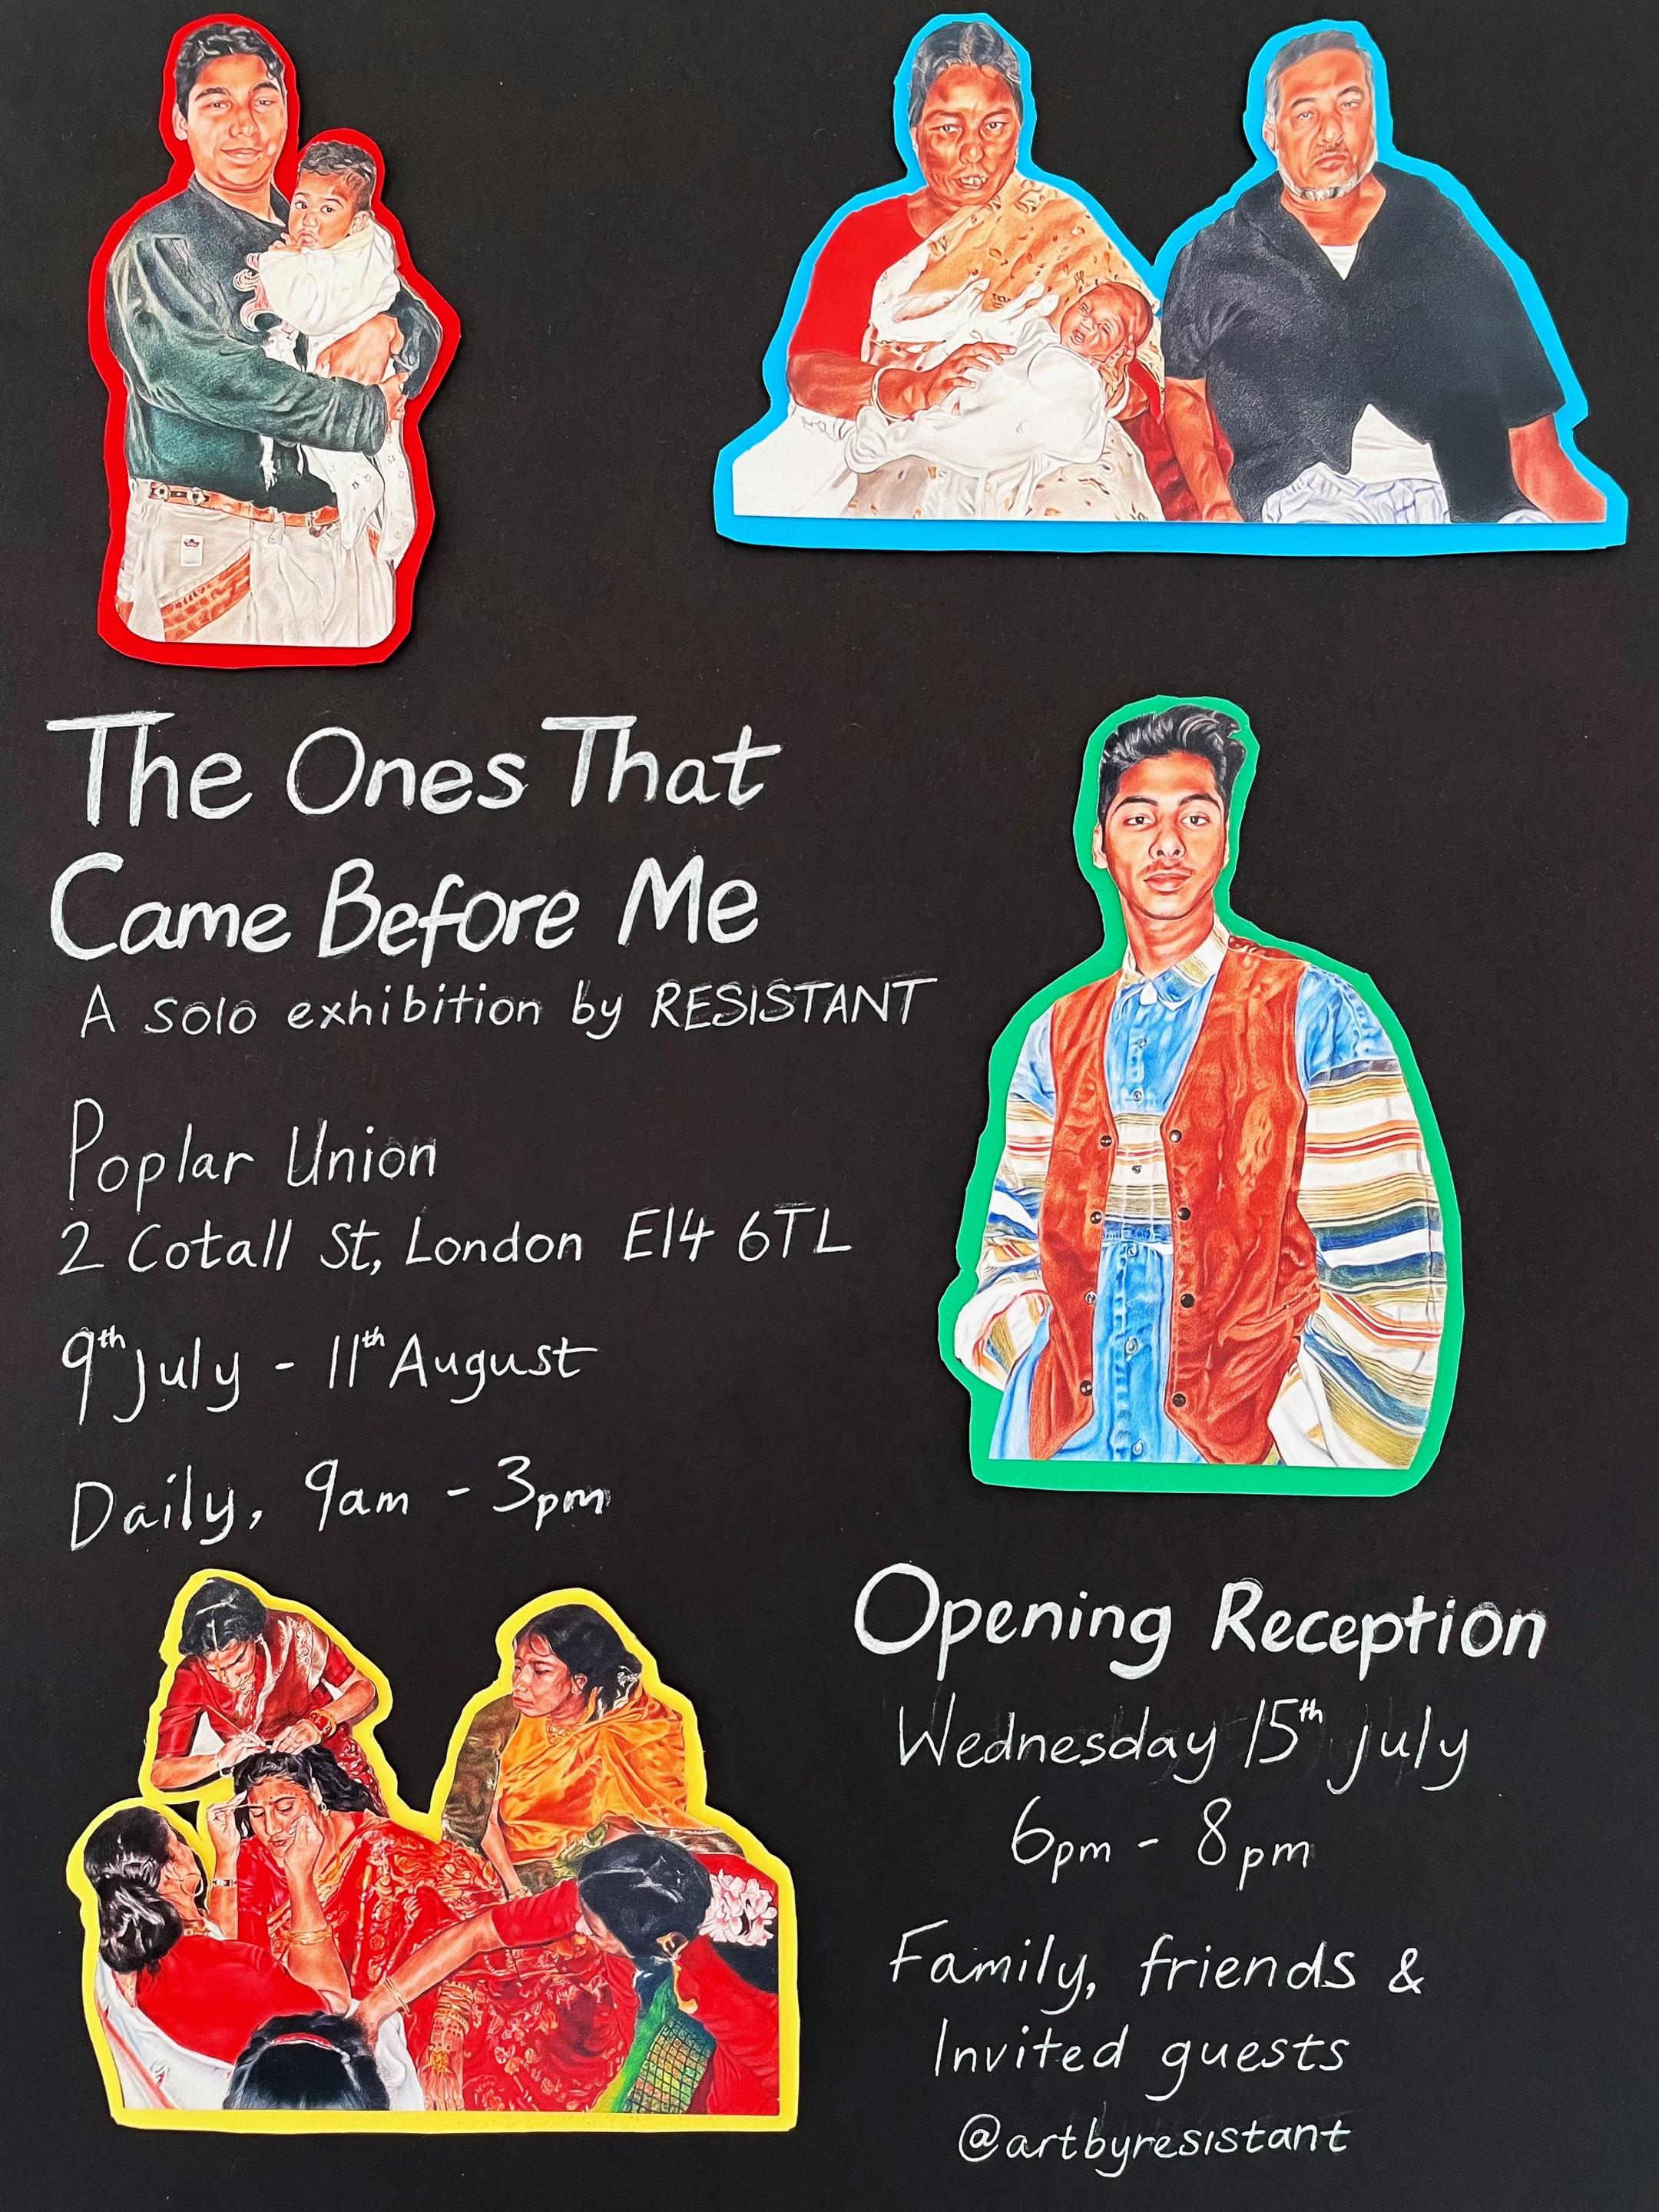 The Ones That
Came Before Me
A solo exhibition by RESISTANT
Poplar Union
2 Cotall St, London E14 6TL
9th July - 11th August
Daily, 9am - 3pm
Opening Reception
Wednesday 15th July
6pm - 8pm
Family, friends &
Invited guests
@artbyresistant